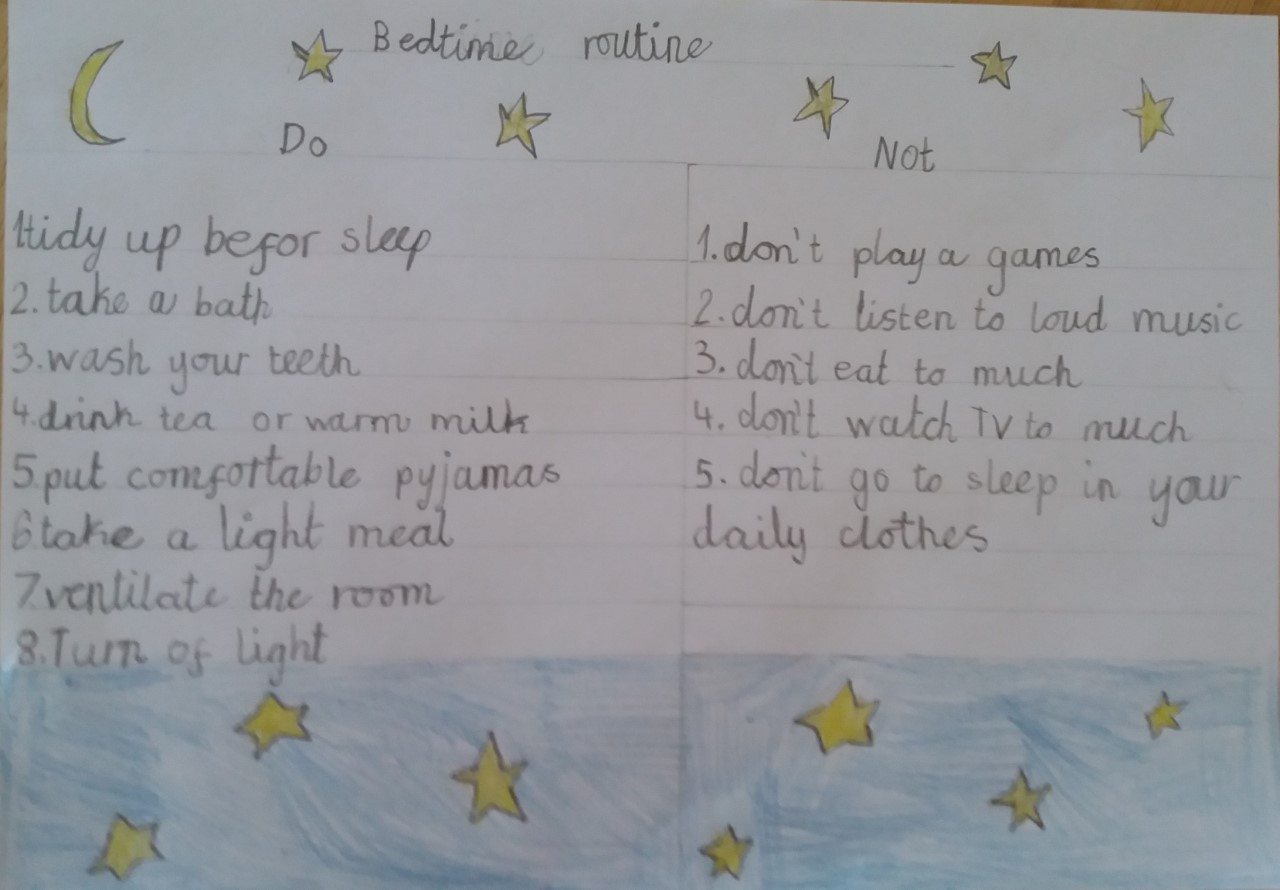 Bedtime routine
Do
Not
1tidy up befor sleep
2. take a bath
3. wash your teeth
4. drink tea or warm milk
5. put comfortable pyjamas
6 take a light meal
7. ventilate the room
8. Turn of light
1. don't play a games
2. don't listen to loud music
3. don't eat to much
4. don't watch TV to much
5. don't go to sleep in your
daily clothes